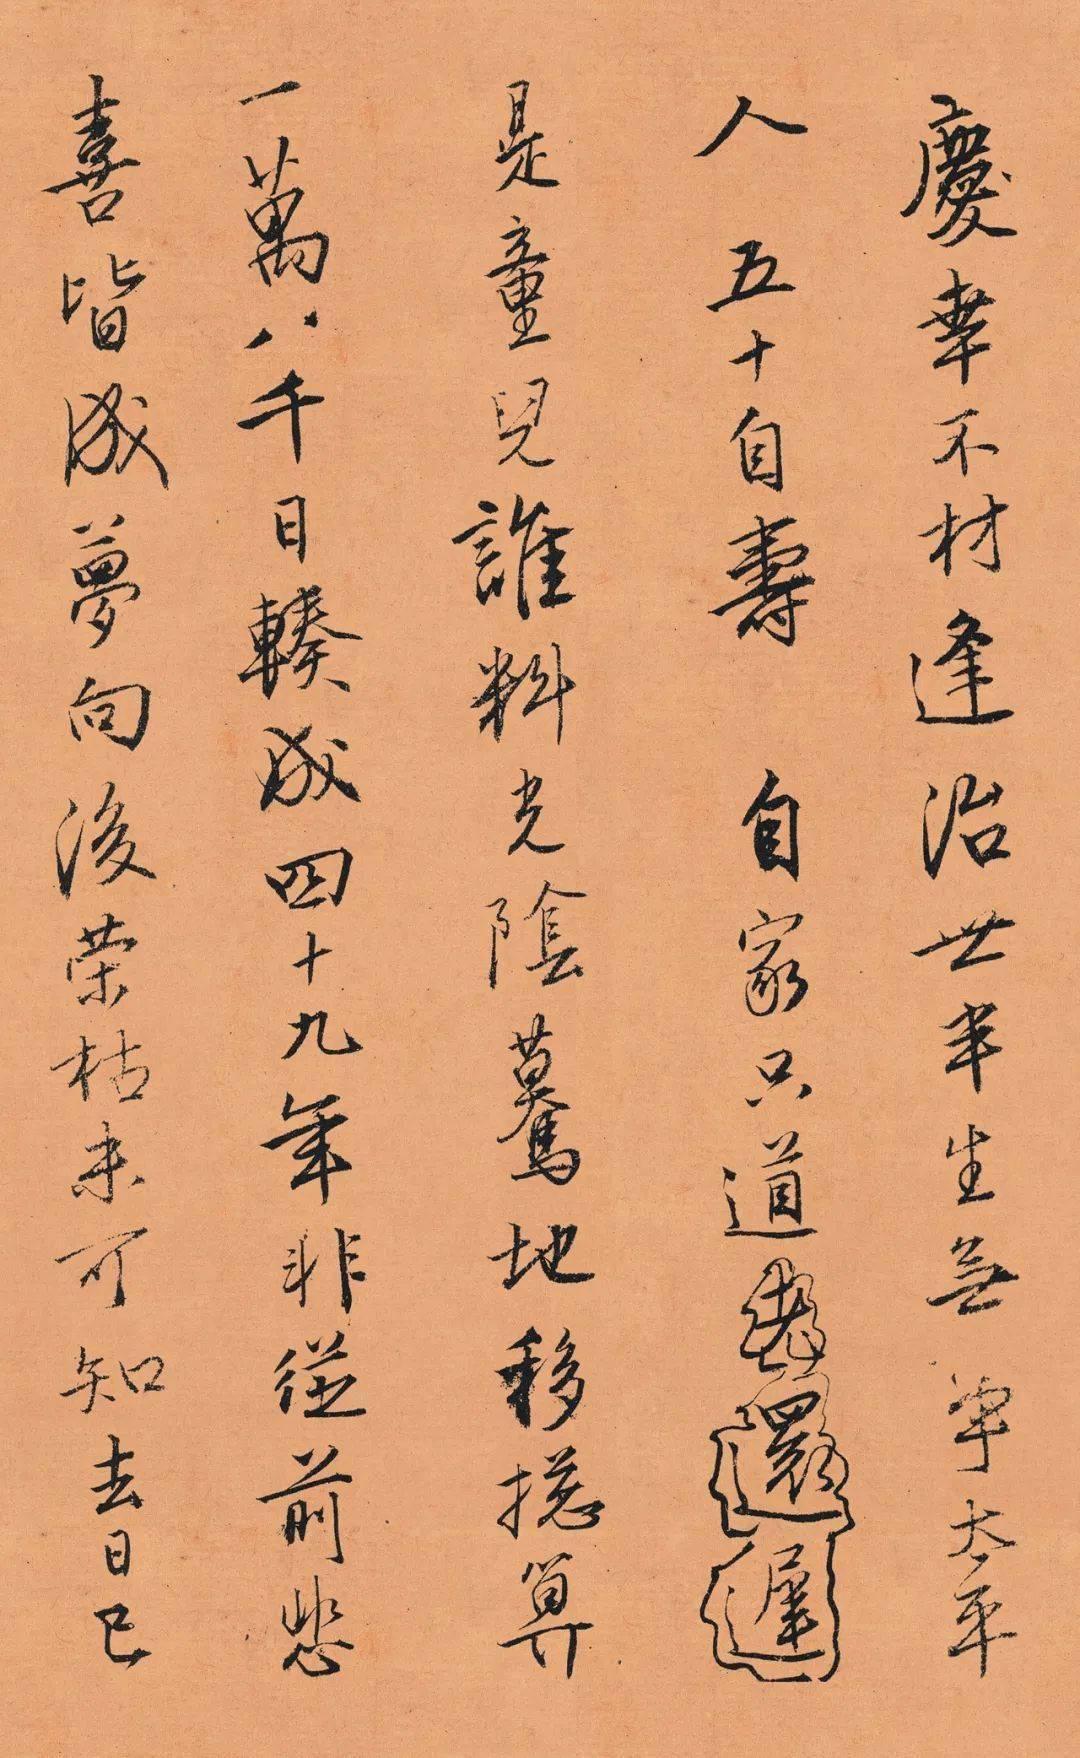 慶幸不材逢治世半生無事太平
人 五十自壽 自家只道老還遲
是童兒誰料光陰驀地移摠算
一萬八千日輳成四十九年非從前悲
喜皆成夢向後荣枯未可知去日已